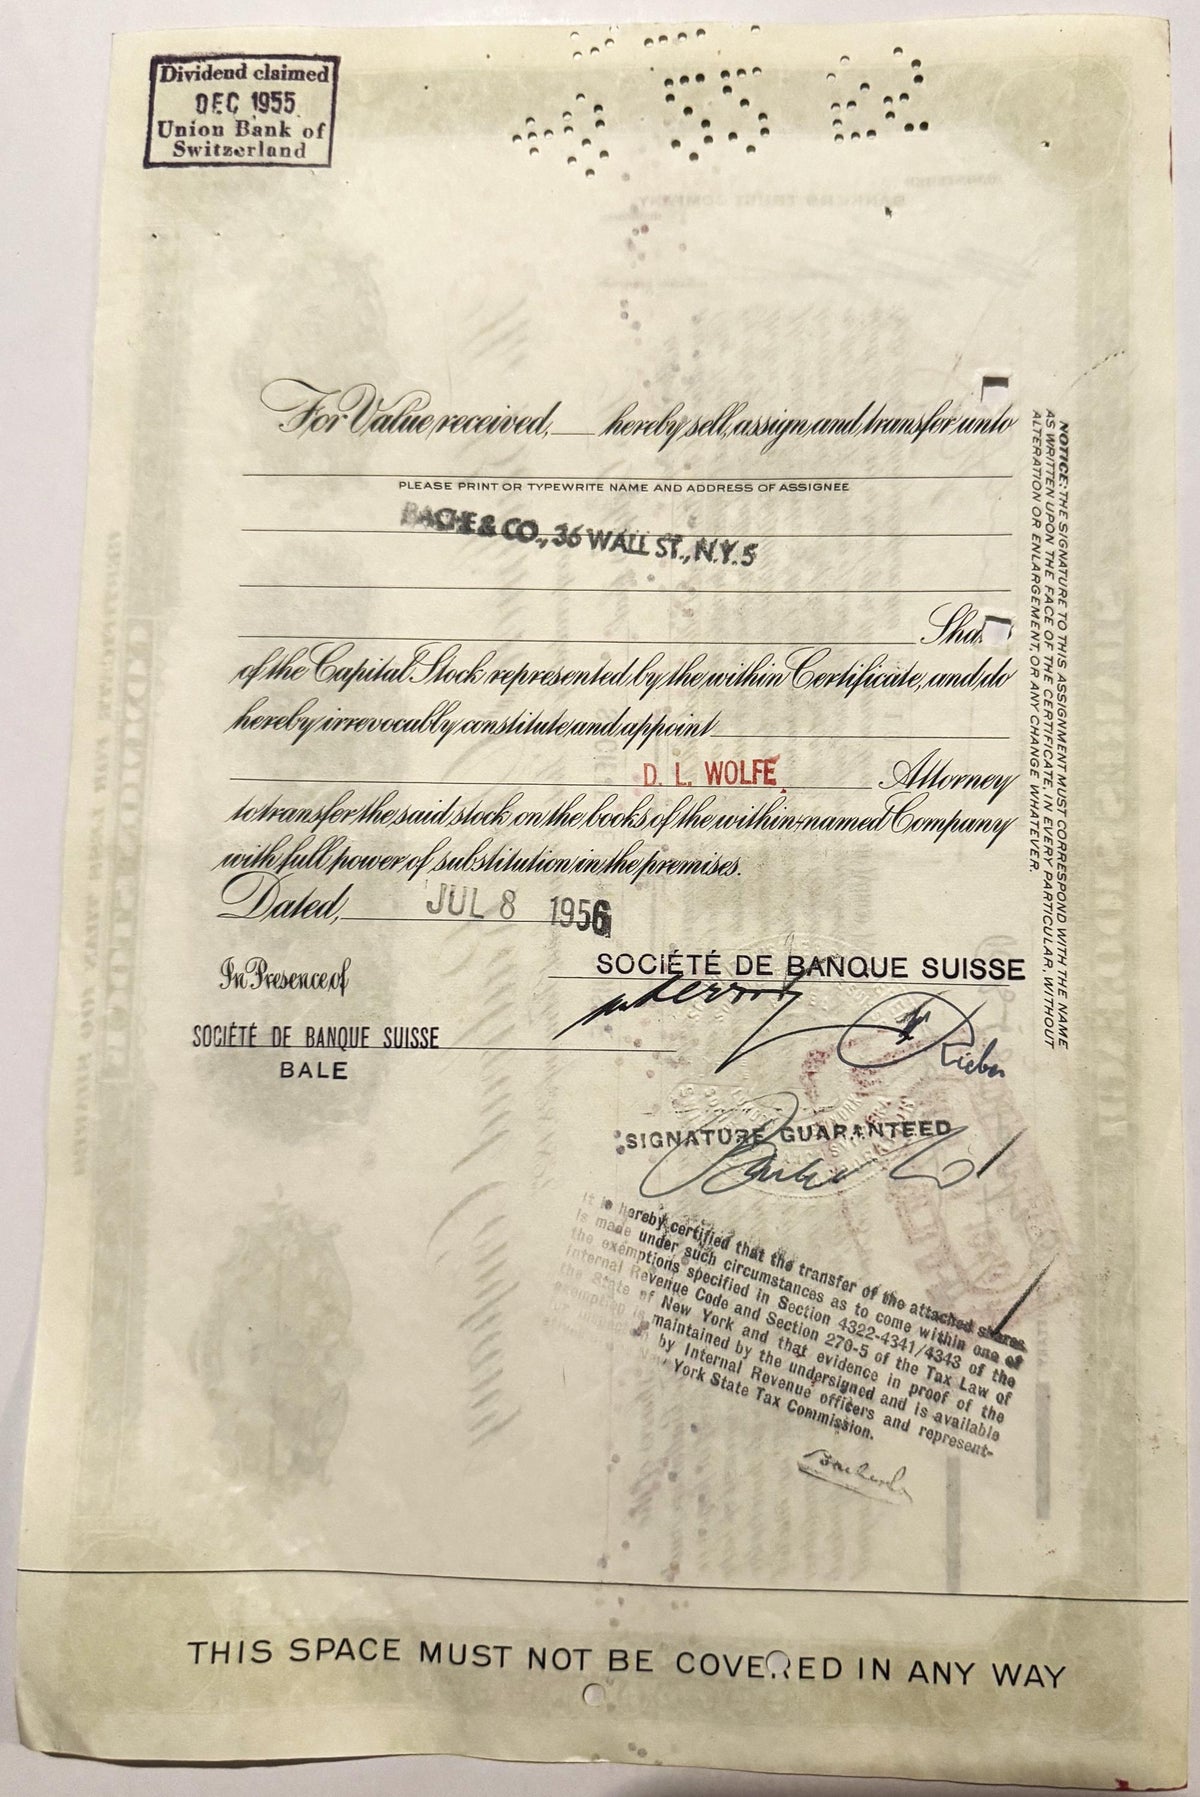 Dividend claimed
DEC 1955
Union Bank of
Switzerland
For Value received, hereby sell, assign and transfer unto
PLEASE PRINT OR TYPEWRITE NAME AND ADDRESS OF ASSIGNEE
BACHE & CO., 36 WALL ST., N.Y. 5
Sha
of the Capital Stock represented by the within Certificate, and do
hereby irrevocably constitute and appoint
D. L. WOLFE Attorney
to transfer the said stock on the books of the within-named Company
with full power of substitution in the premises.
Dated, JUL 8 1956
In Presence of
SOCIÉTÉ DE BANQUE SUISSE
SOCIÉTÉ DE BANQUE SUISSE
BALE
SIGNATURE GUARANTEED
It is hereby certified that the transfer of the attached shares
is made under such circumstances as to come within one of
the exemptions specified in Section 4322-4341/4343 of the
Internal Revenue Code and Section 270-5 of the Tax Law of
the State of New York and that evidence in proof of the
exemption is maintained by the undersigned and is available
by Internal Revenue officers and represent-
York State Tax Commission.
NOTICE: THE SIGNATURE TO THIS ASSIGNMENT MUST CORRESPOND WITH THE NAME
AS WRITTEN UPON THE FACE OF THE CERTIFICATE, IN EVERY PARTICULAR, WITHOUT
ALTERATION OR ENLARGEMENT, OR ANY CHANGE WHATEVER.
THIS SPACE MUST NOT BE COVERED IN ANY WAY